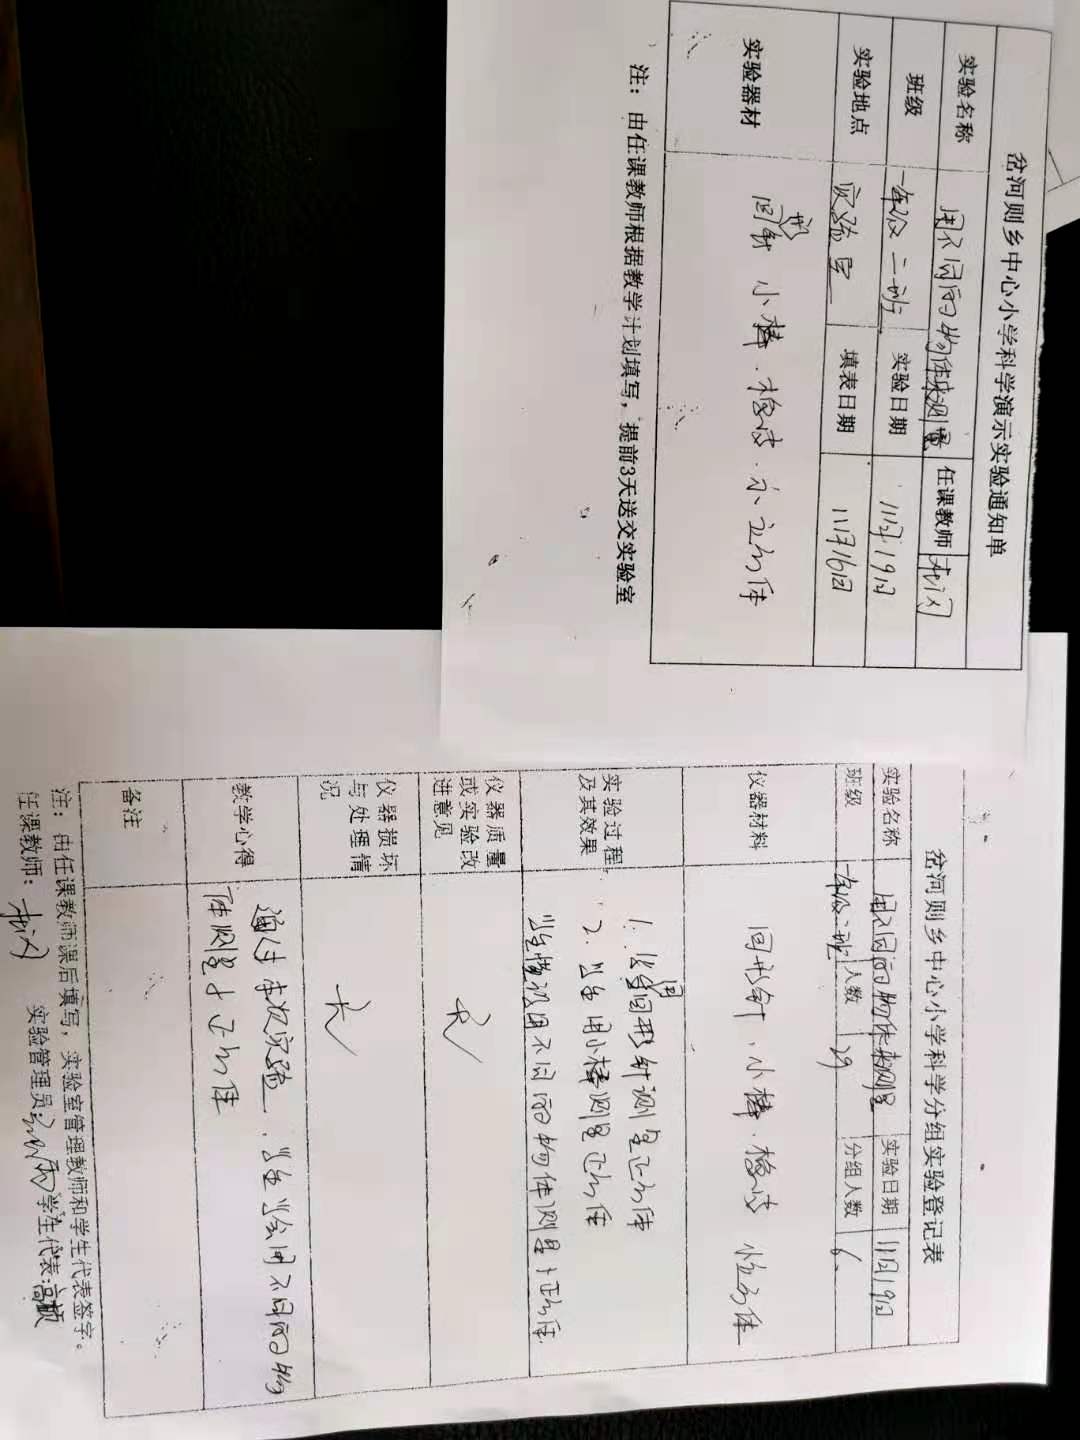 岔河则乡中心小学科学演示实验通知单
实验名称 用不同的物体来测量 任课教师
班级 一年级二班 实验日期 11月19日
实验地点 实验室 填表日期 11月16日
实验器材 回形针 小棒·橡皮·小立方体
注：由任课教师根据教学计划填写，提前3天送交实验室
岔河则乡中心小学科学分组实验登记表
实验名称 用不同的物体来测量 实验日期 11月19日
班级 一年级二班 人数 29 分组人数 6
仪器材料 回形针·小棒·橡皮 方体
实验过程及其效果
1. 学生用回形针测量正方体
2. 学生用小棒测量正方体
学生 用不同的物体测量 正方体
仪器质量或实验改进意见 无
仪器损坏与处理情况 无
教学心得 通过本次实验·学生学会用不同的物
体测量 正方体
备注
注：由任课教师课后填写，实验室管理教师和学生代表签字。
任课教师： 实验管理员： 学生代表：